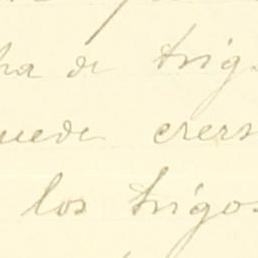 ha de trig
uede creers
los trigos